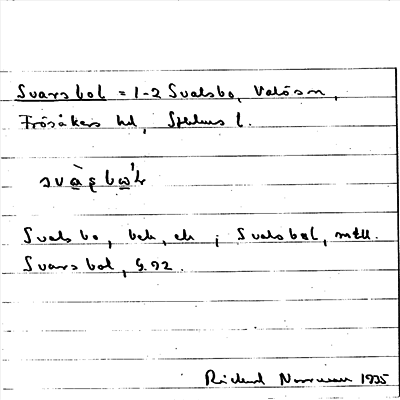 Svarsbol = 1-2 Svalsbo, Valösn,
Frösåkers hd, Sthlms l.
Svalsbo, bek, ek ; Svalsbol, mtl.
Svarsbol, G.92.
Rickard Norrman 1935